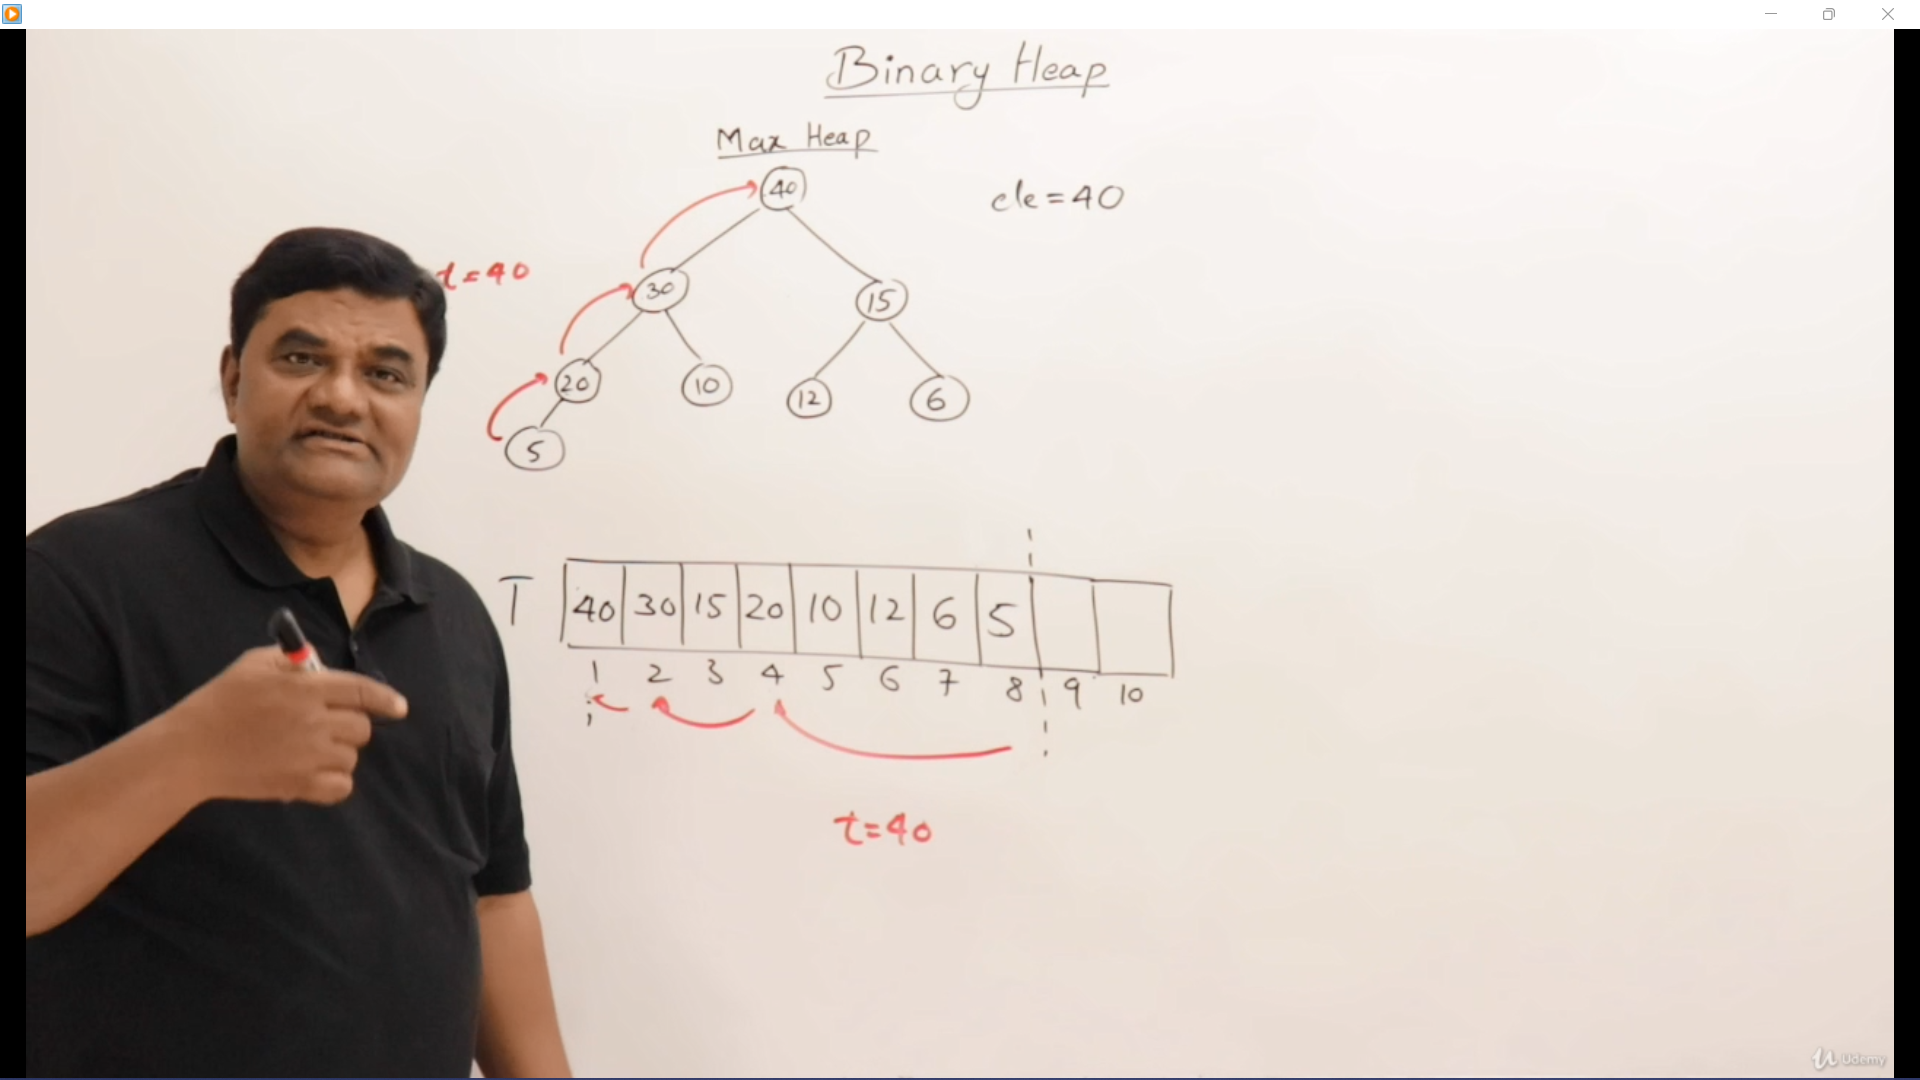 Binary Heap
Max Heap
40
ele=40
t=40
30
15
20
10
12
6
5
T 40 30 15 20 10 12 6 5
1 2 3 4 5 6 7 8 9 10
i
t=40
Udemy